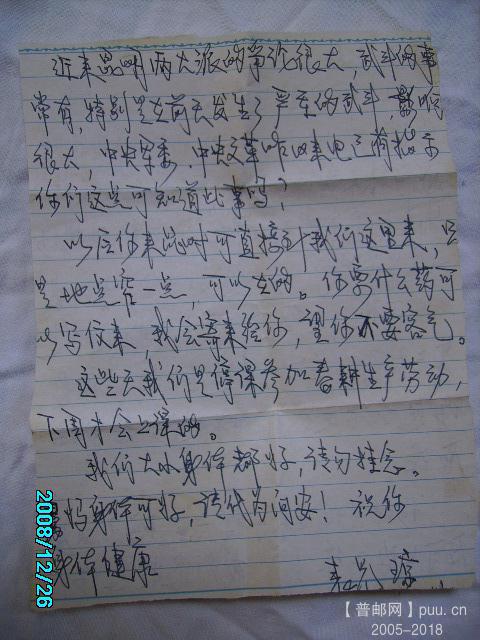 近来昆明两大派的争论很大，武斗的事
常有，特别是在前天发生了严重的武斗，影响
很大，中央军委，中央文革昨日来电已有指示
你们这些可知道此事吗？
以后你来昆时可直接到我们这里来，只
是地点窄一点，可以住的。你要什么药可
以写信来，我会寄来给你，望你不要客气。
这些天我们是停课参加春耕生产劳动，
下周才会上课的。
我们大小身体都好，请勿挂念。
妈身体可好，请代为问安！祝你
身体健康
2008/12/26
【普邮网】puu.cn
2005-2018